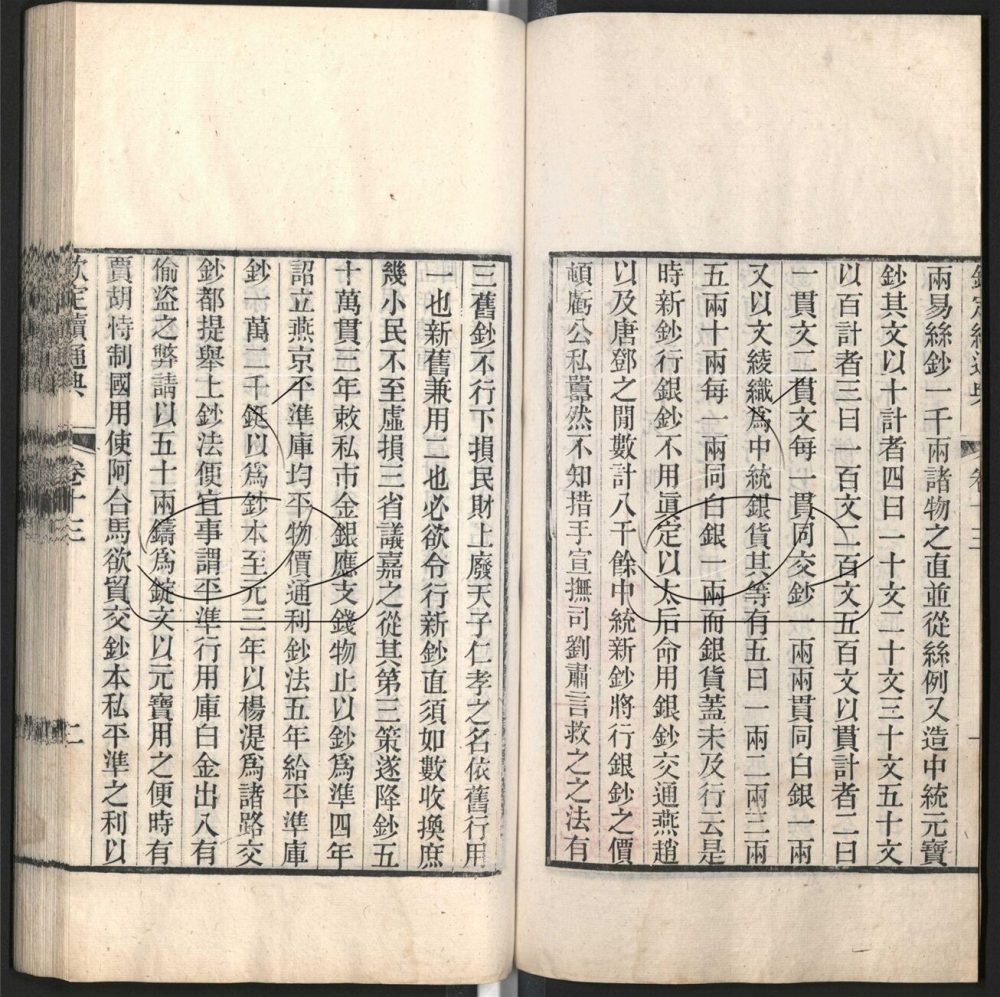 兩易絲鈔一千兩諸物之直並從絲例又造中統元寶
鈔其文以十計者四曰一十文二十文三十文五十文
以百計者三曰一百文二百文五百文以貫計者二曰
一貫文二貫文每一貫同交鈔一兩兩貫同白銀一兩
又以文綾織爲中統銀貨其等有五曰一兩二兩三兩
五兩十兩每一兩同白銀一兩而銀貨蓋未及行云是
時新鈔行銀鈔不用眞定以太后命用銀鈔交通燕趙
以及唐鄧之閒數計八千餘中統新鈔將行銀鈔之價
頓虧公私囂然不知措手宣撫司劉肅言救之之法有
三舊鈔不行下損民財上廢天子仁孝之名依舊行用
一也新舊兼用二也必欲令行新鈔直須如數收換庶
幾小民不至虛損三省議嘉之從其第三策遂降鈔五
十萬貫三年敕私市金銀應支錢物止以鈔爲準四年
詔立燕京平準庫均平物價通利鈔法五年給平準庫
鈔一萬二千鋌以爲鈔本至元三年以楊湜爲諸路交
鈔都提舉上鈔法便宜事謂平準行用庫白金出入有
偷盜之弊請以五十兩鑄爲錠文以元寶用之便時有
賈胡恃制國用使阿合馬欲貿交鈔本私平準之利以
欽定續通典 卷十三 二